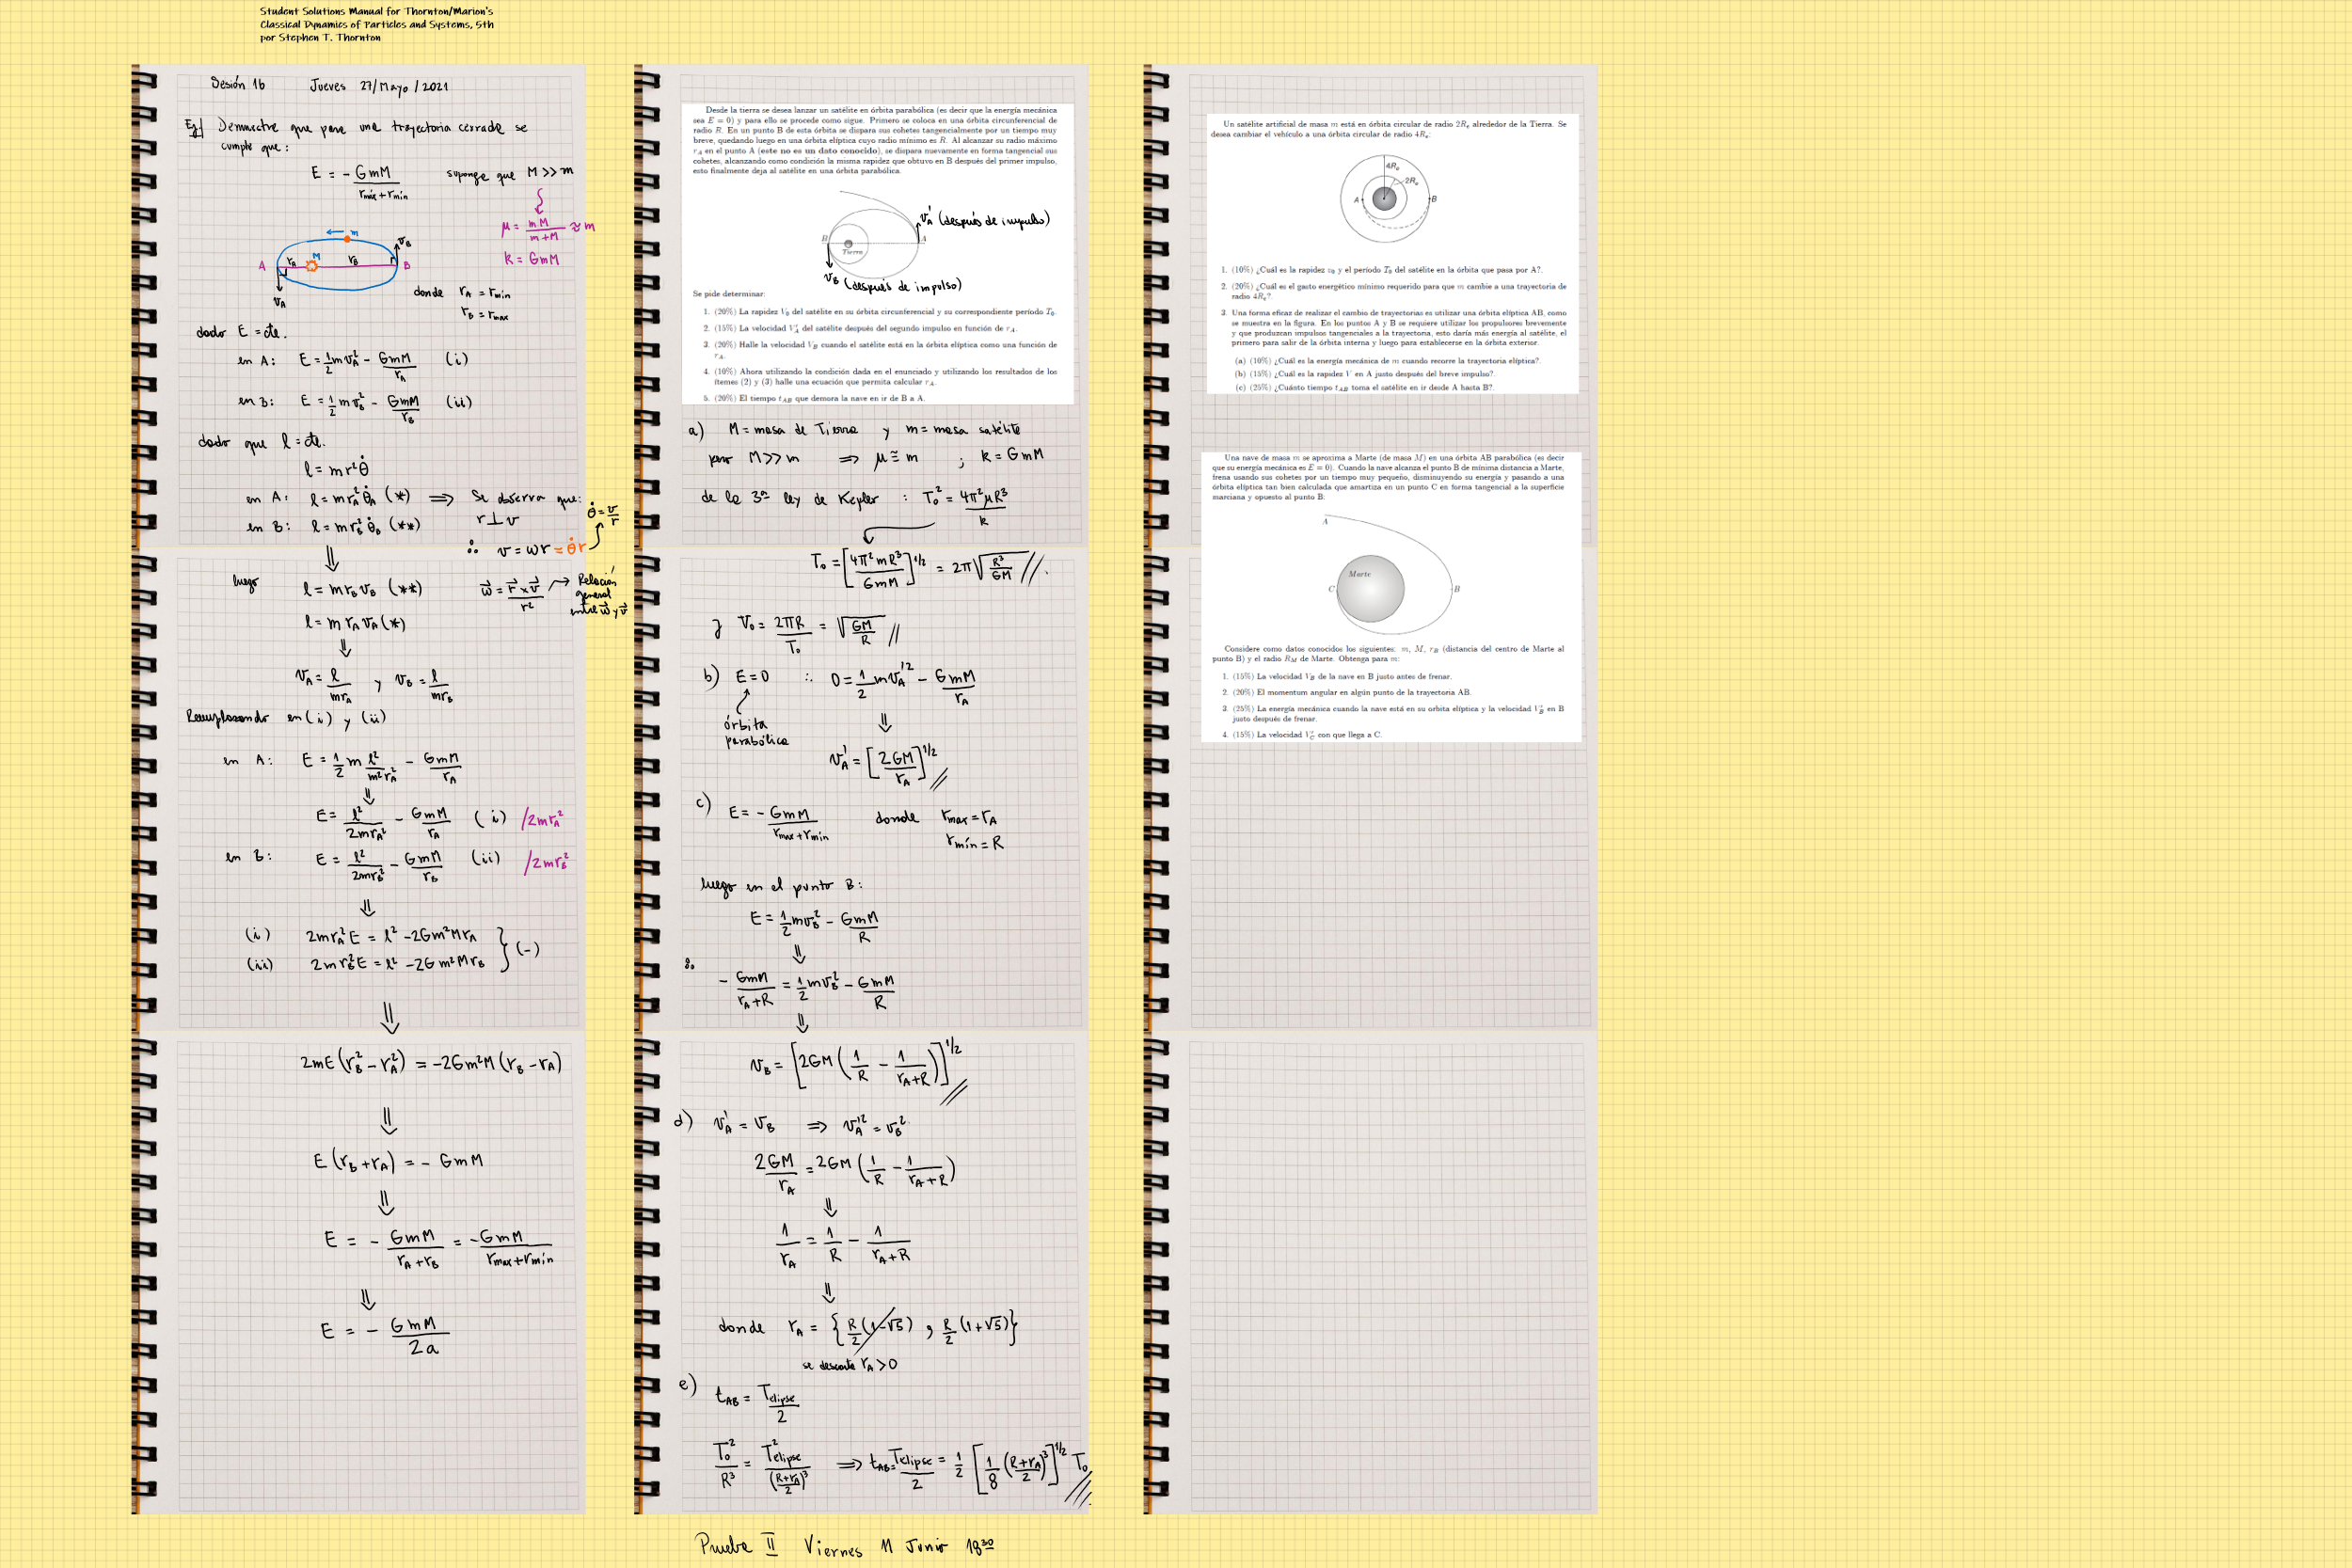 Student Solutions Manual for Thornton/Marion's
Classical Dynamics of Particles and Systems, 5th
por Stephen T. Thornton
Sesión 16 Jueves 27/Mayo/2021
Ej/ Demuestre que para una trayectoria cerrada se
cumple que:
E = - GmM / (rmáx + rmín) suponga que M >> m
μ = mM / (m+M) ≈ m
k = GmM
m
M
A rA rB B
vA
vB
donde rA = rmín
rB = rmax
dado E = cte.
en A: E = 1/2 m vA² - GmM/rA (i)
en B: E = 1/2 m vB² - GmM/rB (ii)
dado que l = cte.
l = mr²θ̇
en A: l = m rA² θ̇A (*) ⟹ Se observa que:
en B: l = m rB² θ̇B (**) r ⊥ v
θ̇ = v/r
∴ v = ωr = θ̇r
⇓
luego l = m rB vB (**)
ω⃗ = r⃗ × v⃗ / r² → Relación general entre ω⃗ y v⃗
l = m rA vA (*)
⇓
vA = l / mrA y vB = l / mrB
Reemplazando en (i) y (ii)
en A: E = 1/2 m l² / m²rA² - GmM/rA
⇓
E = l² / 2mrA² - GmM/rA (i) /2mrA²
en B: E = l² / 2mrB² - GmM/rB (ii) /2mrB²
⇓
(i) 2mrA²E = l² - 2Gm²MrA
(ii) 2mrB²E = l² - 2Gm²MrB } (-)
⇓
2mE(rB² - rA²) = -2Gm²M(rB - rA)
⇓
E(rB + rA) = - GmM
⇓
E = - GmM / (rA + rB) = - GmM / (rmax + rmín)
⇓
E = - GmM / 2a
Desde la tierra se desea lanzar un satélite en órbita parabólica (es decir que la energía mecánica
sea E = 0) y para ello se procede como sigue. Primero se coloca en una órbita circunferencial de
radio R. En un punto B de esta órbita se dispara sus cohetes tangencialmente por un tiempo muy
breve, quedando luego en una órbita elíptica cuyo radio mínimo es R. Al alcanzar su radio máximo
rA en el punto A (este no es un dato conocido), se dispara nuevamente en forma tangencial sus
cohetes, alcanzando como condición la misma rapidez que obtuvo en B después del primer impulso,
esto finalmente deja al satélite en una órbita parabólica.
v'A (después de impulso)
B Tierra A
vB (después de impulso)
Se pide determinar:
1. (20%) La rapidez V0 del satélite en su órbita circunferencial y su correspondiente período T0.
2. (15%) La velocidad V'A del satélite después del segundo impulso en función de rA.
3. (20%) Halle la velocidad VB cuando el satélite está en la órbita elíptica como una función de
rA.
4. (10%) Ahora utilizando la condición dada en el enunciado y utilizando los resultados de los
ítemes (2) y (3) halle una ecuación que permita calcular rA.
5. (20%) El tiempo tAB que demora la nave en ir de B a A.
a) M = masa de Tierra y m = masa satélite
pero M >> m ⟹ μ ≅ m ; k = GmM
de la 3ra ley de Kepler : T0² = 4π²μR³ / k
T0 = [4π²mR³ / GmM]^1/2 = 2π√(R³/GM) //.
y V0 = 2πR / T0 = √(GM/R) //
b) E = 0 ∴ 0 = 1/2 m vA'² - GmM/rA
órbita
parabólica
⇓
v'A = [2GM / rA]^1/2 //
c) E = - GmM / (rmax + rmin) donde rmax = rA
rmín = R
luego en el punto B:
E = 1/2 mvB² - GmM/R
⇓
∴ - GmM / (rA + R) = 1/2 mvB² - GmM/R
⇓
vB = [2GM (1/R - 1/(rA+R))]^1/2 //
d) v'A = vB ⟹ vA'² = vB²
2GM / rA = 2GM (1/R - 1/(rA+R))
⇓
1/rA = 1/R - 1/(rA+R)
⇓
donde rA = { R/2 (1-√5) , R/2 (1+√5) }
se descarta rA > 0
e) tAB = Telipse / 2
T0² / R³ = T²elipse / ((R+rA)/2)³ ⟹ tAB = Telipse / 2 = 1/2 [1/8 ((R+rA)/2)³]^1/2 T0 //
Un satélite artificial de masa m está en órbita circular de radio 2Re alrededor de la Tierra. Se
desea cambiar el vehículo a una órbita circular de radio 4Re:
4Re
2Re
A B
1. (10%) ¿Cuál es la rapidez v0 y el período T0 del satélite en la órbita que pasa por A?.
2. (20%) ¿Cuál es el gasto energético mínimo requerido para que m cambie a una trayectoria de
radio 4Re?.
3. Una forma eficaz de realizar el cambio de trayectorias es utilizar una órbita elíptica AB, como
se muestra en la figura. En los puntos A y B se requiere utilizar los propulsores brevemente
y que produzcan impulsos tangenciales a la trayectoria, esto daría más energía al satélite, el
primero para salir de la órbita interna y luego para establecerse en la órbita exterior.
(a) (10%) ¿Cuál es la energía mecánica de m cuando recorre la trayectoria elíptica?.
(b) (15%) ¿Cuál es la rapidez V en A justo después del breve impulso?.
(c) (25%) ¿Cuánto tiempo tAB toma el satélite en ir desde A hasta B?.
Una nave de masa m se aproxima a Marte (de masa M) en una órbita AB parabólica (es decir
que su energía mecánica es E = 0). Cuando la nave alcanza el punto B de mínima distancia a Marte,
frena usando sus cohetes por un tiempo muy pequeño, disminuyendo su energía y pasando a una
órbita elíptica tan bien calculada que amartiza en un punto C en forma tangencial a la superficie
marciana y opuesto al punto B:
A
Marte
C B
Considere como datos conocidos los siguientes: m, M, rB (distancia del centro de Marte al
punto B) y el radio RM de Marte. Obtenga para m:
1. (15%) La velocidad VB de la nave en B justo antes de frenar.
2. (20%) El momentum angular en algún punto de la trayectoria AB.
3. (25%) La energía mecánica cuando la nave está en su orbita elíptica y la velocidad V'B en B
justo después de frenar.
4. (15%) La velocidad V'C con que llega a C.
Prueba II Viernes 11 Junio 18:30